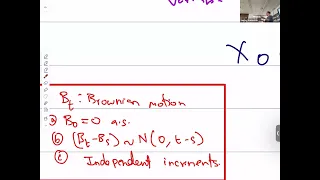 X₀
B_t : Brownian motion
ⓐ B₀ = 0 a.s.
ⓑ (B_t - B_s) ~ N(0, t-s)
ⓒ Independent increments.